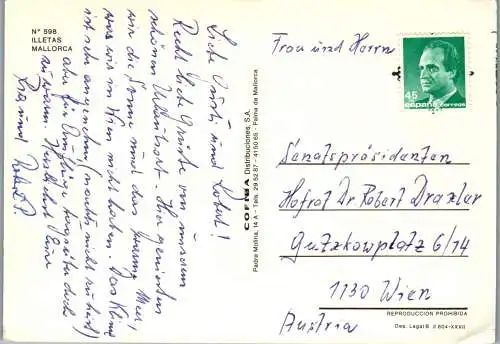 Nº 598
ILLETAS
MALLORCA
Liebe Gusti und Robert!
Recht liebe Grüße von unserem
schönen Urlaubsort. Hier genießen
wir die Sonne und das Meer,
was wir in Wien nicht haben. Das Klima
ist sehr angenehm, (nachts nicht zu heiß)
aber für Ausflüge
zu warm. Herzlichst Eure
und Robert P.
COFIBA Distribuciones, S.A.
Padre Molina, 14 A - Tels. 29 52 87 - 41 50 65 - Palma de Mallorca
Frau und Herrn
45
españa correos
Senatspräsidenten
Hofrat Dr Robert Draxler
Gutzkowplatz 6/14
1130 Wien
Austria
REPRODUCCION PROHIBIDA
Dep. Legal B. 604-XXVII